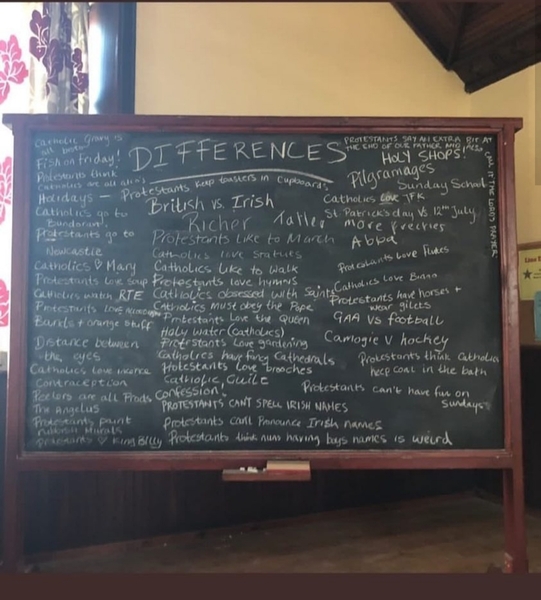 DIFFERENCES
Catholic gravy is
all bisto
Fish on friday!
Protestants think
Catholics are all
Holidays -
Catholics go to
Bundoran.
Protestants go to
Newcastle
Catholics ♡ Mary
Protestants love soup
Catholics watch RTE
Protestants love
Bands + orange stuff
Distance between
the eyes
Catholics love
contraception
Peelers are all Prods
The Angelus
Protestants paint
Murals
Protestants ♡ King Billy
Protestants keep toasters in cupboards
British vs. Irish
Richer
Taller
Protestants like to March
Catholics love statues
Catholics like to walk
Protestants love hymns
Catholics obsessed with Saints
Catholics must obey the Pope
Protestants love the Queen
Holy water (Catholics)
Protestants love gardening
Catholics have fancy Cathedrals
Protestants love brooches
Catholic Guilt
Confession!
PROTESTANTS CAN'T SPELL IRISH NAMES
Protestants can't Pronounce Irish names
Protestants think nuns having boys names is weird
PROTESTANTS SAY AN EXTRA BIT AT
THE END OF OUR FATHER AND ALSO
CALL IT THE LORD'S PRAYER.
HOLY SHOPS!
Pilgramages
Sunday School
Catholics Love JFK
St Patrick's day VS 12th July
More freckles
Abba
Protestants love Flutes
Catholics Love Bingo
Protestants have horses +
wear gilets
GAA VS football
Camogie V hockey
Protestants think Catholics
keep coal in the bath
Protestants can't have fun on
Sundays